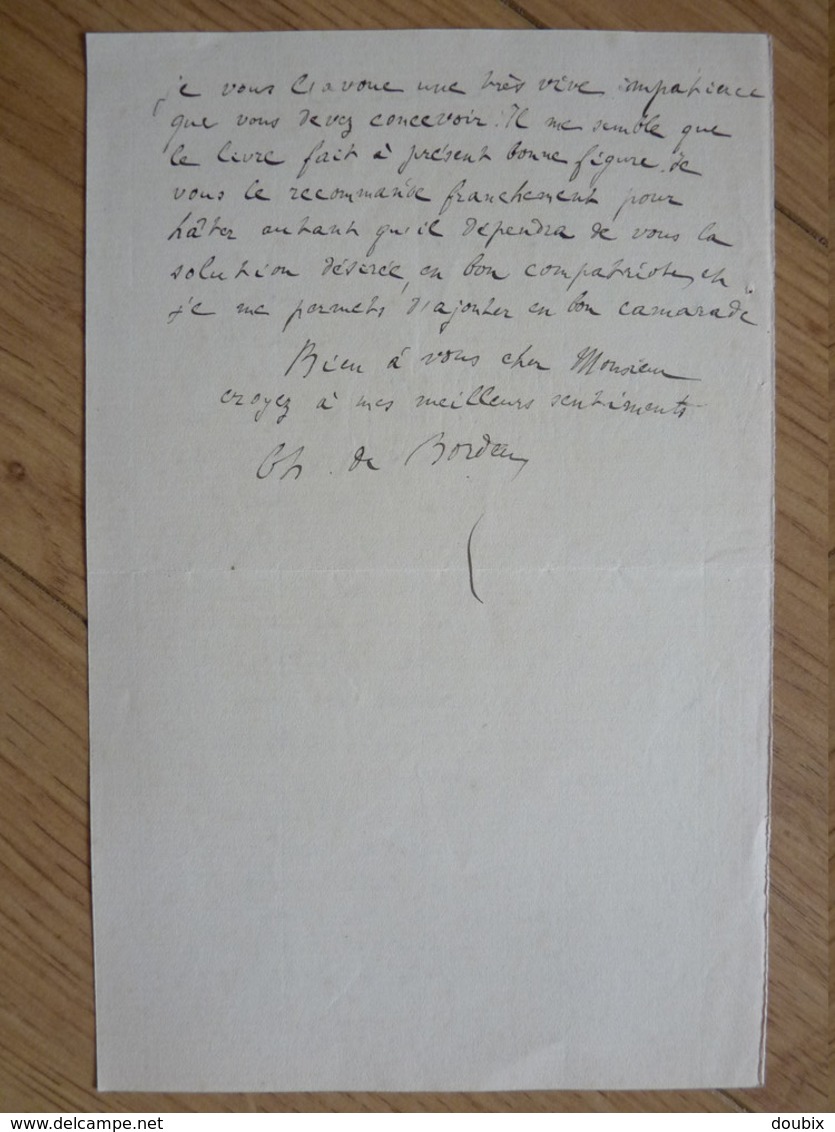 je vous l'avoue une très vive impatience
que vous devez concevoir. Il me semble que
le livre fait à présent bonne figure. Je
vous le recommande franchement pour
hâter autant qu'il dépendra de vous la
solution désirée, en bon compatriote, et
je me permets d'ajouter en bon camarade
Bien à vous cher Monsieur
croyez à mes meilleurs sentiments
Ch. de Bordeu
delcampe.net
doubix